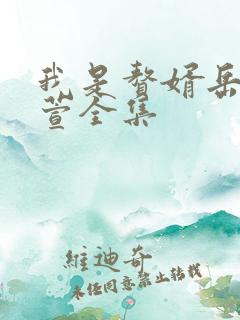 我是赘婿岳
萱全集
維迪奇
未経同意禁止转载